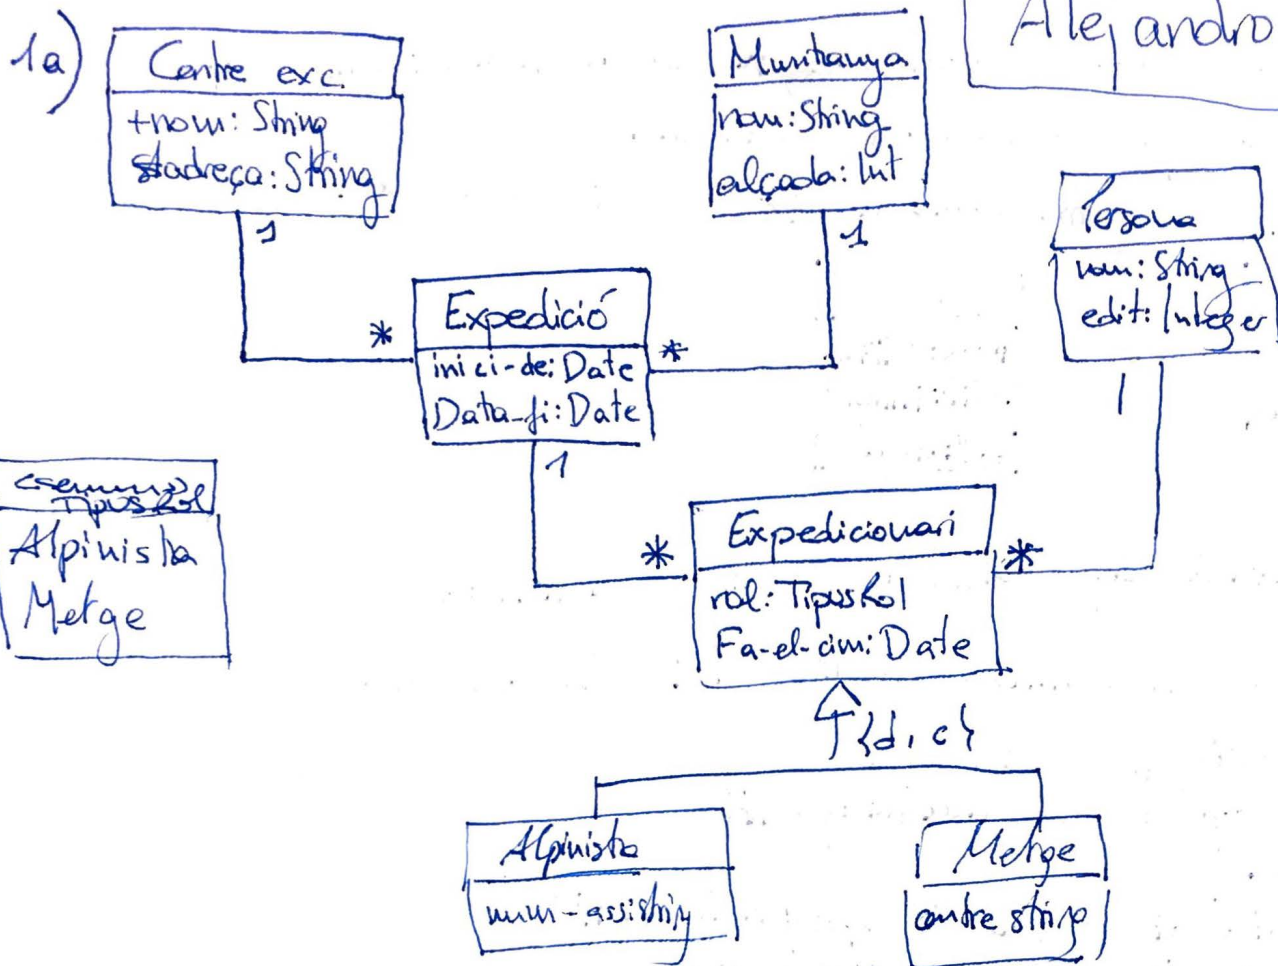 1a)
Centre exc.
+nom: String
adreça: String
1
Muntanya
nom: String
alçada: Int
1
Alejandro
Persona
nom: String
edit: Integer
1
Expedició
inici-de: Date
Data_fi: Date
*
*
1
TipusRol
Alpinista
Metge
Expedicionari
rol: TipusRol
Fa-el-cim: Date
*
*
{d, c}
Alpinista
num-
Metge
centre string